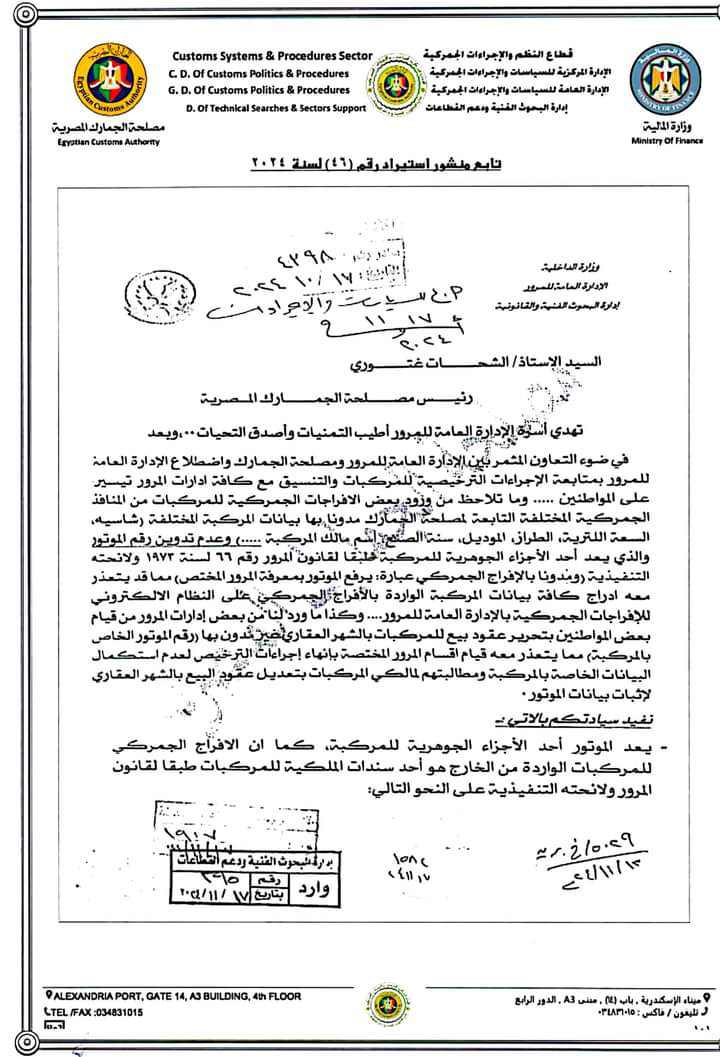 Customs Systems & Procedures Sector
قطاع النظم والإجراءات الجمركية
C. D. Of Customs Politics & Procedures
الإدارة المركزية للسياسات والإجراءات الجمركية
G. D. Of Customs Politics & Procedures
الإدارة العامة للسياسات والإجراءات الجمركية
D. Of Technical Searches & Sectors Support
إدارة البحوث الفنية ودعم القطاعات
Egyptian Customs Authority
MINISTRY OF FINANCE
مصلحة الجمارك المصرية
Egyptian Customs Authority
وزارة المالية
Ministry Of Finance
تابع منشور استيراد رقم (٤٦) لسنة ٢٠٢٤
٤٣٩٨
٢٠٢٤/١٠/١٧
وزارة الداخلية
الإدارة العامة للمرور
إدارة البحوث الفنية والقانونية
للسياسات والإجراءات
١١/١٧
٢٠٢٤
السيد الاستاذ/ الشحات غتوري
رئيس مصلحة الجمارك المصرية
تهدي أسرة الإدارة العامة للمرور أطيب التمنيات وأصدق التحيات ،،وبعد
في ضوء التعاون المثمر بين الإدارة العامة للمرور ومصلحة الجمارك واضطلاع الإدارة العامة
للمرور بمتابعة الإجراءات الترخيصية للمركبات والتنسيق مع كافة ادارات المرور تيسير
على المواطنين ..... وما تلاحظ من ورود بعض الافراجات الجمركية للمركبات من المنافذ
الجمركية المختلفة التابعة لمصلحة الجمارك مدونا بها بيانات المركبة المختلفة (شاسيه،
السعة اللترية، الطراز، الموديل، سنة الصنع، إسم مالك المركبة .....) وعدم تدوين رقم الموتور
والذي يعد أحد الأجزاء الجوهرية للمركبة طبقا لقانون المرور رقم ٦٦ لسنة ١٩٧٣ ولائحته
التنفيذية (ومدونا بالإفراج الجمركي عبارة: يرفع الموتور بمعرفة المرور المختص) مما قد يتعذر
معه ادراج كافة بيانات المركبة الواردة بالأفراج الجمركي على النظام الالكتروني
للإفراجات الجمركية بالإدارة العامة للمرور.... وكذا ما ورد لنا من بعض إدارات المرور من قيام
بعض المواطنين بتحرير عقود بيع للمركبات بالشهر العقاري غير مدون بها (رقم الموتور الخاص
بالمركبة) مما يتعذر معه قيام اقسام المرور المختصة بإنهاء إجراءات الترخيص لعدم استكمال
البيانات الخاصة بالمركبة ومطالبتهم لمالكي المركبات بتعديل عقود البيع بالشهر العقاري
لإثبات بيانات الموتور .
نفيد سيادتكم بالاتي :-
- يعد الموتور أحد الأجزاء الجوهرية للمركبة، كما ان الافراج الجمركي
للمركبات الواردة من الخارج هو أحد سندات الملكية للمركبات طبقا لقانون
المرور ولائحته التنفيذية على النحو التالي:
١٩٠٧
إدارة البحوث الفنية ودعم القطاعات
وارد
رقم
بتاريخ ٢٠٢٤/١١/١٧
١٥٨٢
٥٠٢٩
٢٤/١١/١٣
ALEXANDRIA PORT, GATE 14, A3 BUILDING, 4th FLOOR
TEL /FAX :034831015
ميناء الإسكندرية , باب (١٤) , مبنى A3 , الدور الرابع
تليفون / فاكس : ٠٣٤٨٣١٠١٥